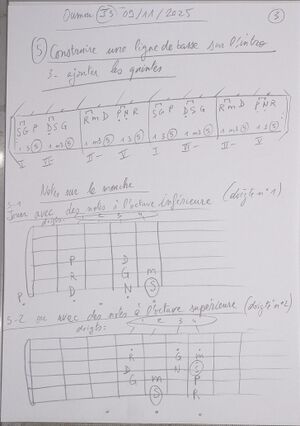 Oumou J3 09/11/2025
3
5 Construire une ligne de basse sur l'intro
3- ajouter les quintes
S G P D S G R m D P N R S G P D S G R m D P N R
1 3 5 1 m3 5 1 m3 5 1 3 5 1 3 5 1 m3 5 1 m3 5 1 3 5
I II- V I II- V
Notes sur le manche
5-1
Jouer avec des notes à l'octave inférieure (doigté n°1)
doigts: 1 2 3 4
P D
R G m
P. D N S
5-2 ou avec des notes à l'octave supérieure (doigté n°2)
doigts: 1 2 3 4
R G m
D N S
G m P
S R